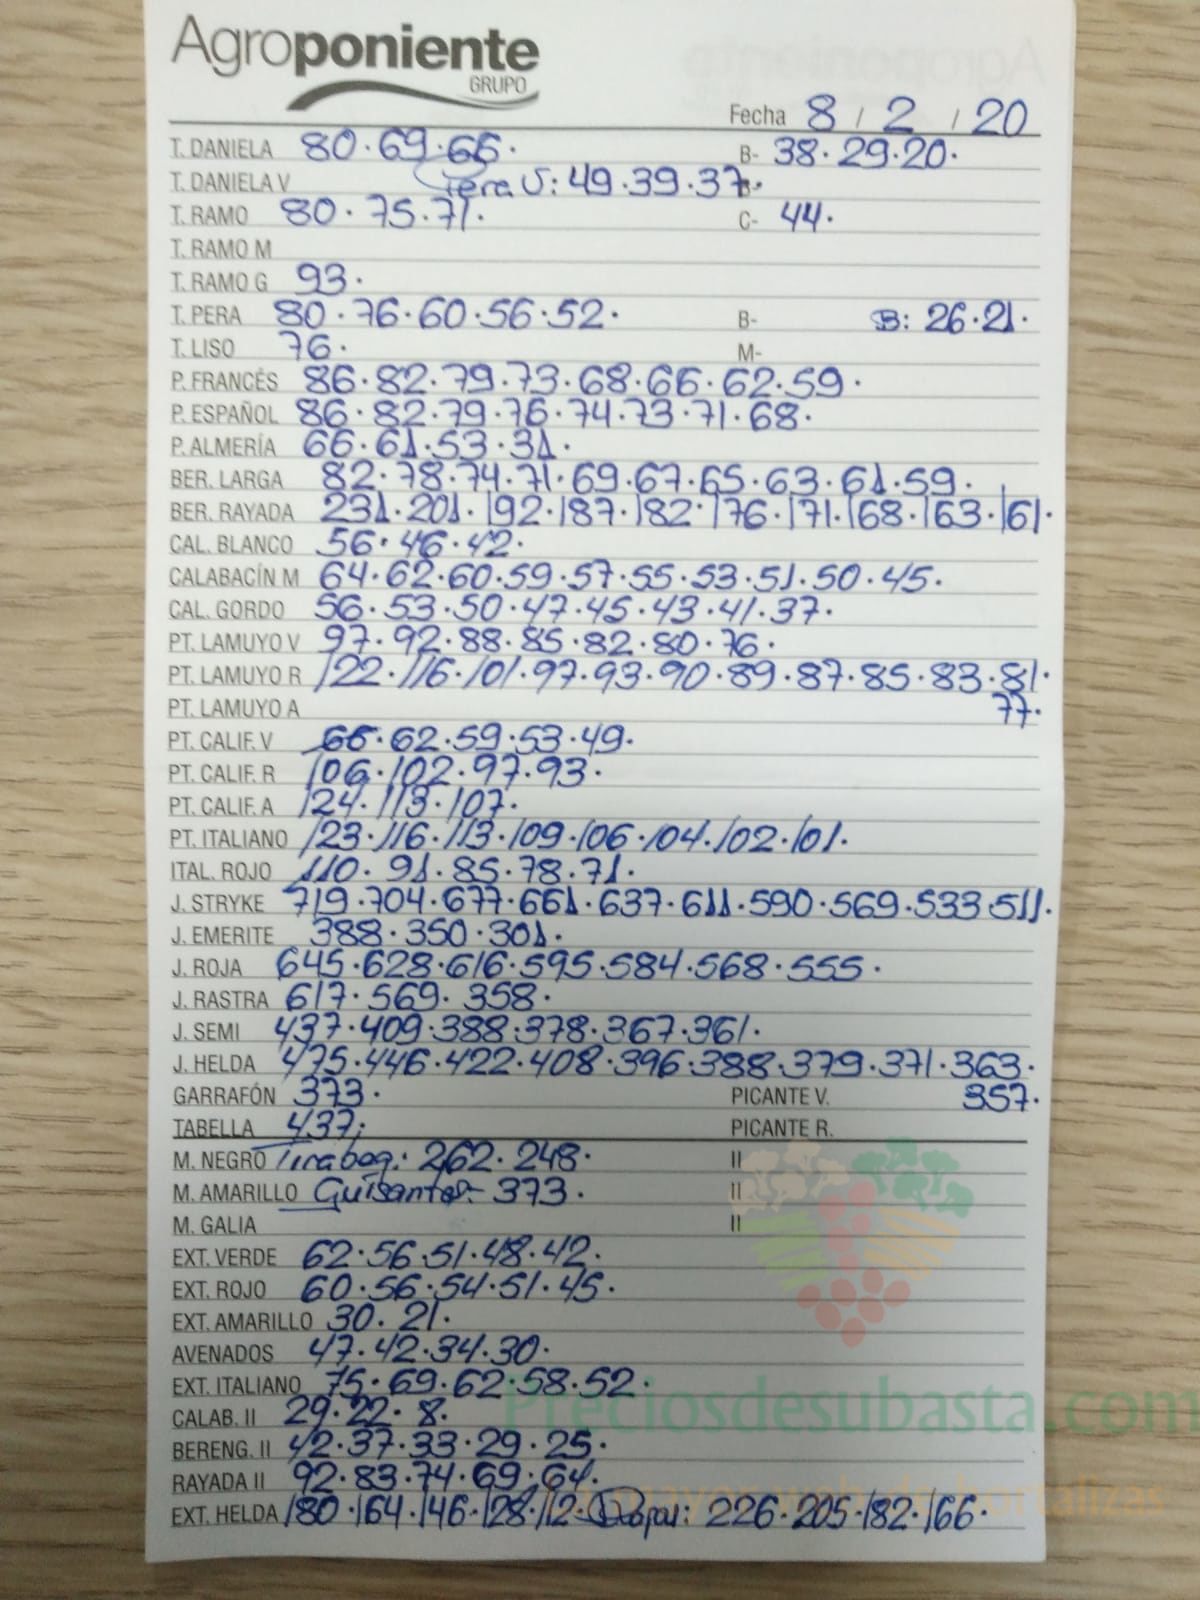 Agroponiente
GRUPO
Fecha 8 / 2 / 20
T. DANIELA 80·69·66· B- 38·29·20·
T. DANIELA V Pera V: 49·39·37· B-
T. RAMO 80·75·71· C- 44·
T. RAMO M
T. RAMO G 93·
T. PERA 80·76·60·56·52· B- B: 26·21·
T. LISO 76· M-
P. FRANCÉS 86·82·79·73·68·66·62·59·
P. ESPAÑOL 86·82·79·76·74·73·71·68·
P. ALMERÍA 66·61·53·31·
BER. LARGA 82·78·74·71·69·67·65·63·61·59·
BER. RAYADA 231·201·192·187·182·176·171·168·163·161·
CAL. BLANCO 56·46·42·
CALABACÍN M 64·62·60·59·57·55·53·51·50·45·
CAL. GORDO 56·53·50·47·45·43·41·37·
PT. LAMUYO V 97·92·88·85·82·80·76·
PT. LAMUYO R 122·116·101·97·93·90·89·87·85·83·81·
PT. LAMUYO A 77·
PT. CALIF. V 66·62·59·53·49·
PT. CALIF. R 106·102·97·93·
PT. CALIF. A 124·113·107·
PT. ITALIANO 123·116·113·109·106·104·102·101·
ITAL. ROJO 110·91·85·78·71·
J. STRYKE 719·704·677·661·637·611·590·569·533·511·
J. EMERITE 388·350·301·
J. ROJA 645·628·616·595·584·568·555·
J. RASTRA 617·569·358·
J. SEMI 437·409·388·378·367·361·
J. HELDA 475·446·422·408·396·388·379·371·363·
GARRAFÓN 373· PICANTE V. 357·
TABELLA 437· PICANTE R.
M. NEGRO Tirabeq: 262·248· II
M. AMARILLO Guisantes- 373· II
M. GALIA II
EXT. VERDE 62·56·51·48·42·
EXT. ROJO 60·56·54·51·45·
EXT. AMARILLO 30·21·
AVENADOS 47·42·34·30·
EXT. ITALIANO 75·69·62·58·52·
Preciosdesubasta.com
CALAB. II 29·22·8·
BERENG. II 42·37·33·29·25·
RAYADA II 92·83·74·69·64·
EXT. HELDA 180·164·146·128·112· 226·205·182·166·